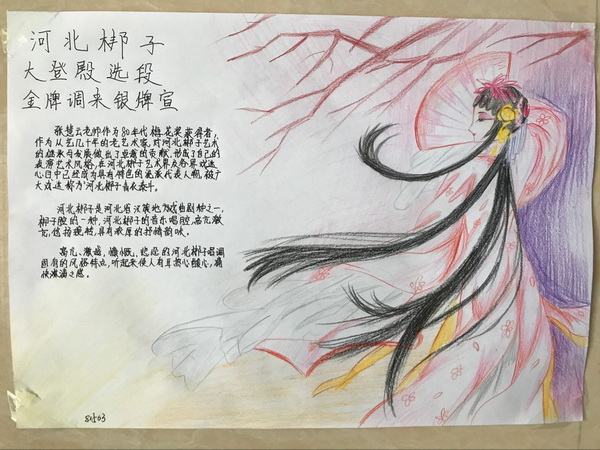 河北梆子
大登殿选段
金牌调来银牌宣
张慧云老师作为80年代梅花奖获得者,
作为从艺几十年的老艺术家,对河北梆子艺术
的继承与发展做出了卓越的贡献,形成了自己的
表演艺术风格,在河北梆子艺术界及布昂戏迷
心目中已经成为具有特色的派代表人物,被广
大戏迷称为河北梆子泰斗。
河北梆子是河北省汉族地方戏曲剧种之一,
梆子腔的一种,河北梆子的音乐唱腔,高亢激
昂,悠扬婉转,具有浓厚的抒情韵味。
高亢、激越、慷慨,这是的河北梆子唱调
固有的风格特点,听起来使人有耳热心酸心,痛
快淋漓之感。
80503